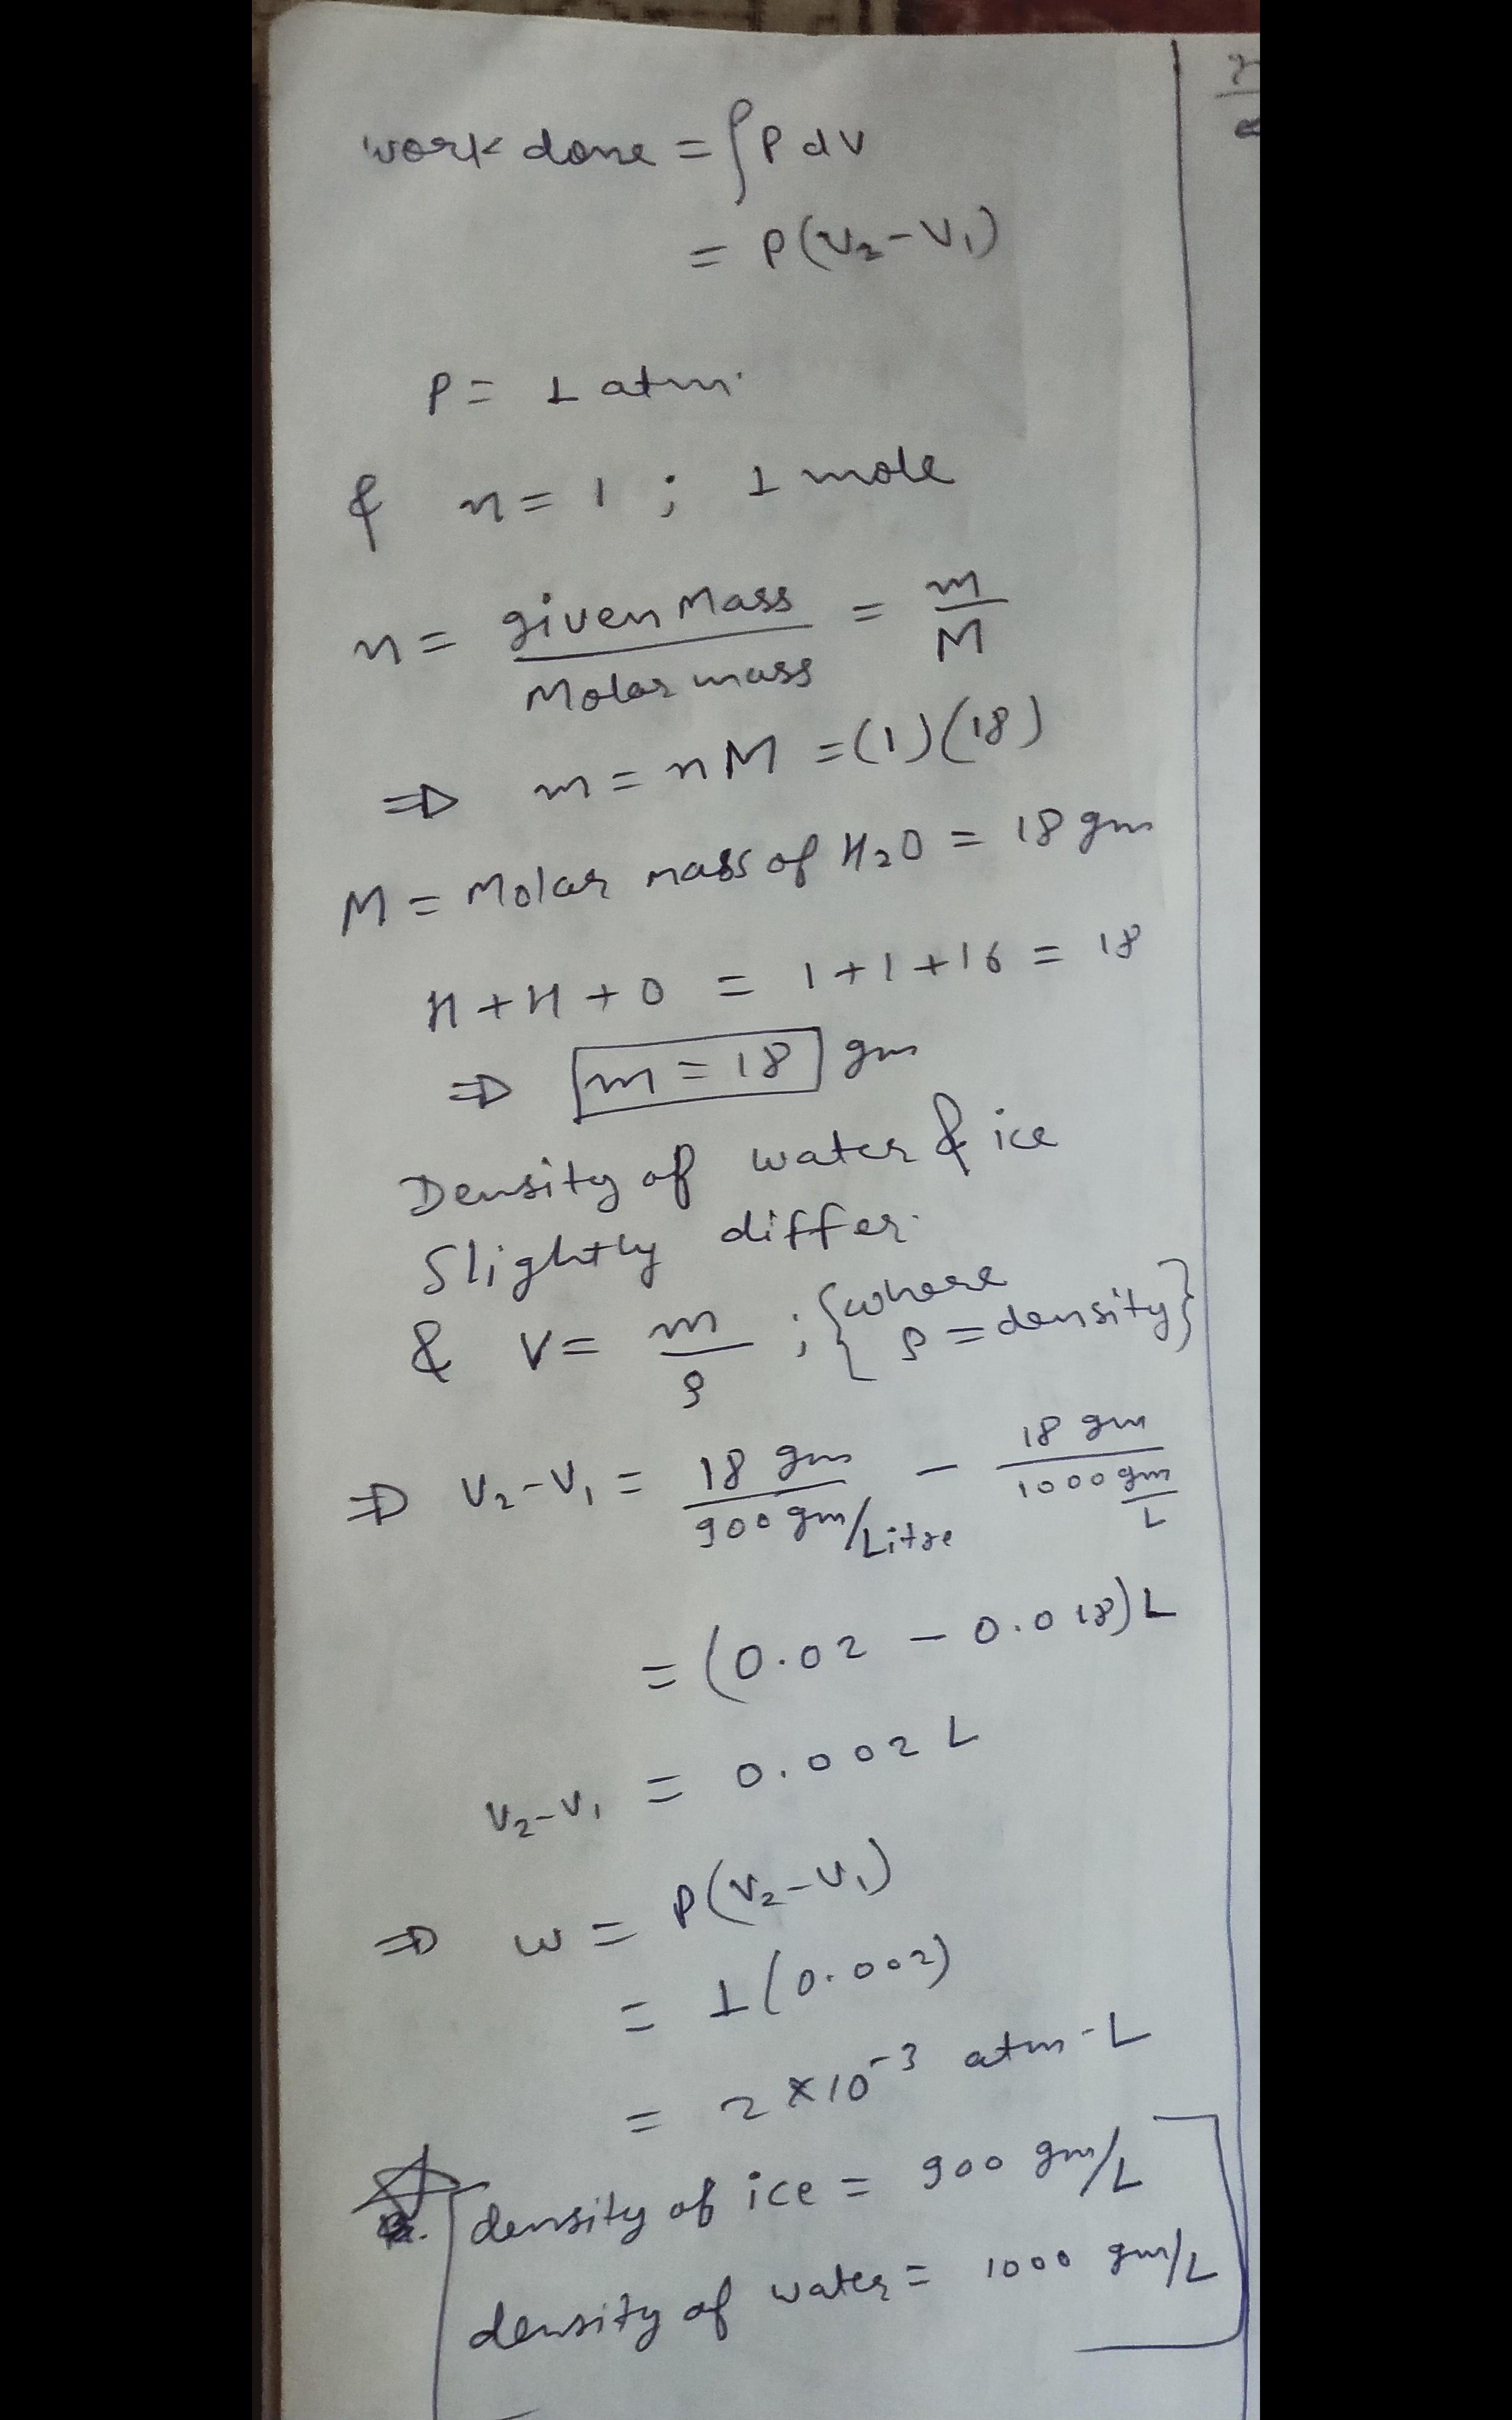 work done = ∫ P dV
= P(V₂-V₁)
P = 1 atm.
& n = 1 ; 1 mole
n = given Mass / Molar mass = m / M
⇒ m = nM = (1)(18)
M = Molar mass of H₂O = 18 gm
H + H + O = 1+1+16 = 18
⇒ m = 18 gm
Density of water & ice
Slightly differ.
& V = m / ρ ; {where ρ = density}
⇒ V₂-V₁ = 18 gm / 900 gm/Litre - 18 gm / 1000 gm/L
= (0.02 - 0.018) L
V₂-V₁ = 0.002 L
⇒ W = P(V₂-V₁)
= 1(0.002)
= 2 × 10⁻³ atm-L
[density of ice = 900 gm/L
density of water = 1000 gm/L]